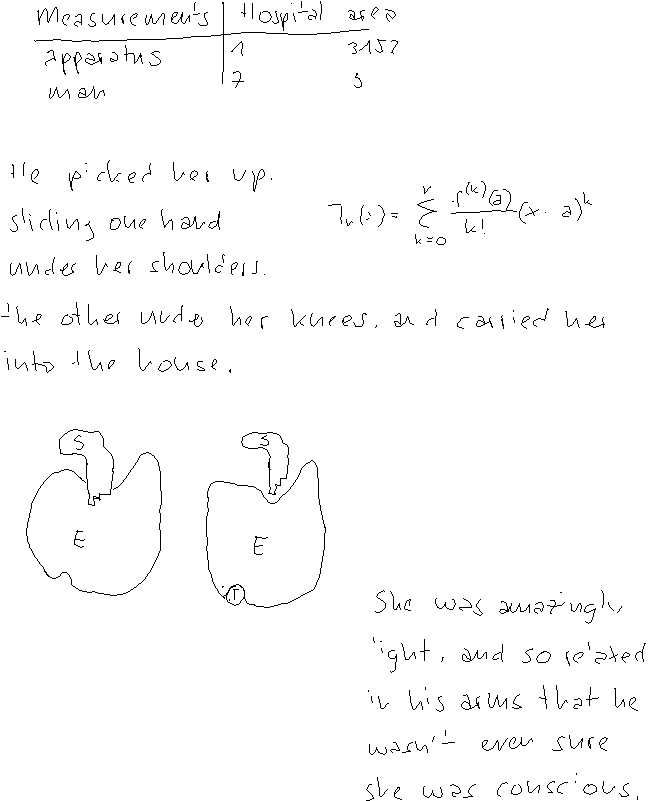 Measurements Hospital area
apparatus 1 3152
man 7 5
He picked her up.
sliding one hand
under her shoulders.
the other under her knees, and carried her
into the house.
k=0
k!
S S
E E
T
She was amazingly
light, and so relaxed
in his arms that he
wasn't even sure
she was conscious.